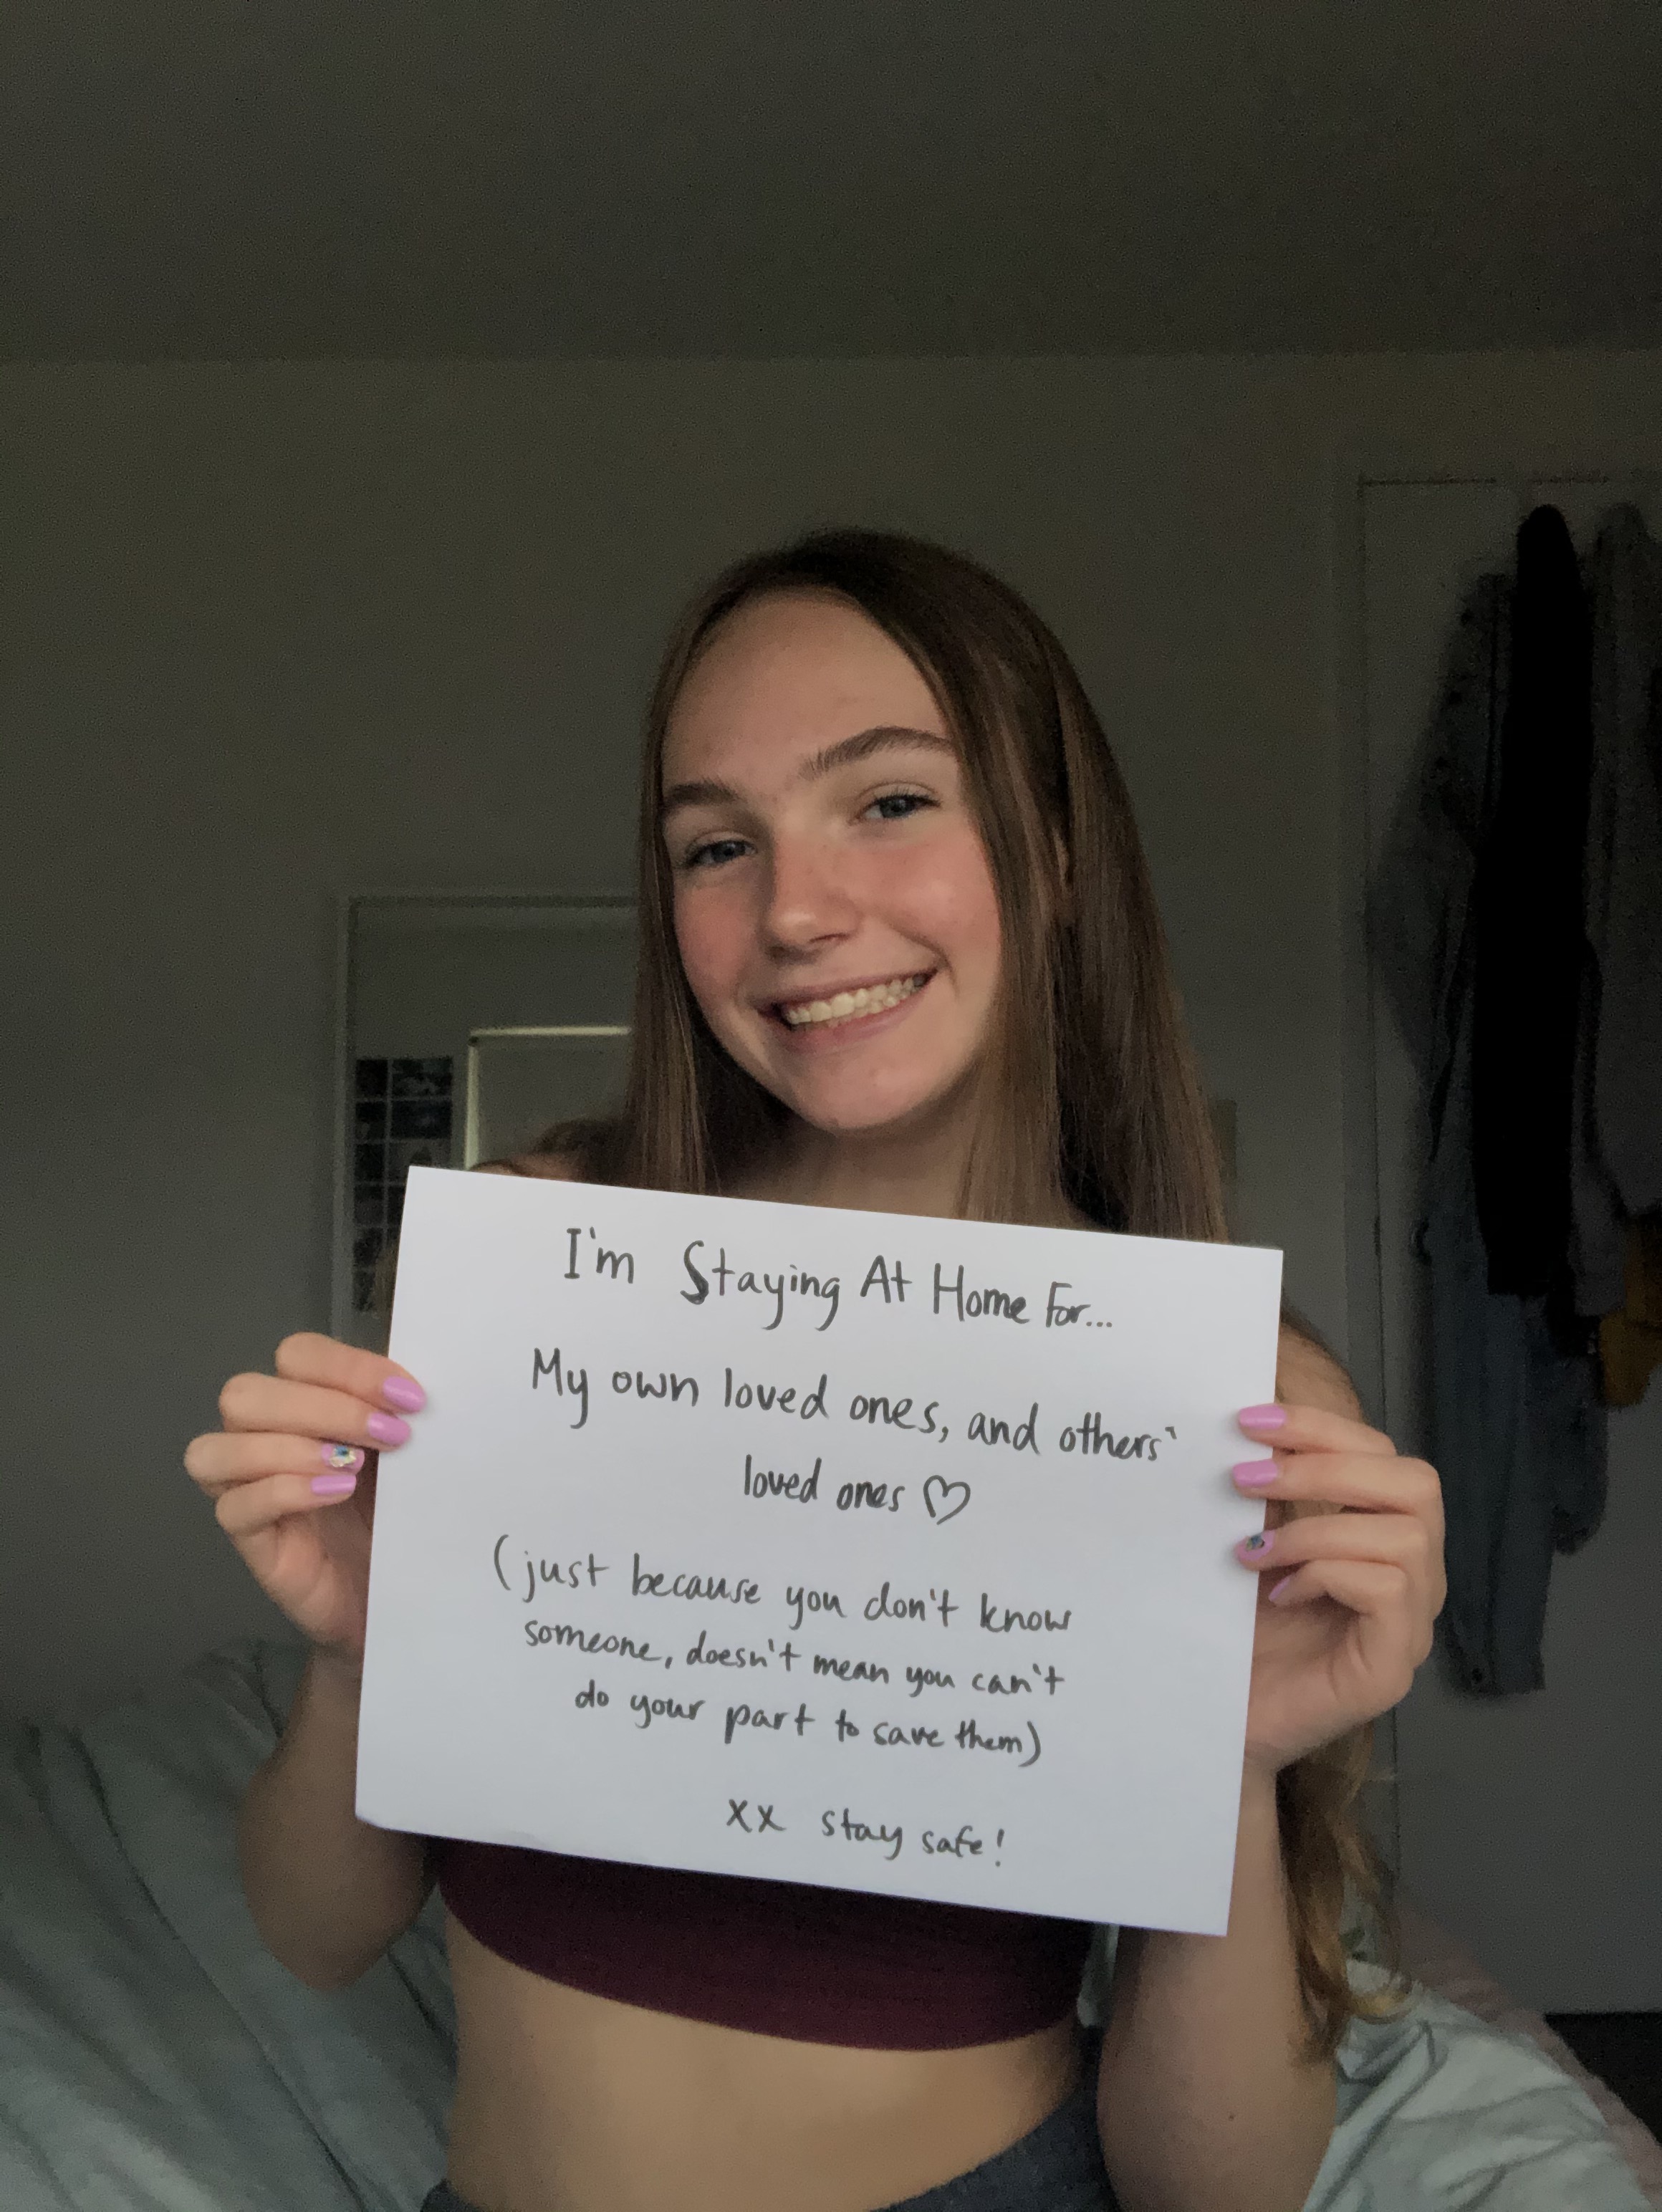 I'm Staying At Home For...
My own loved ones, and others'
loved ones ♡
(just because you don't know
someone, doesn't mean you can't
do your part to save them)
xx stay safe!